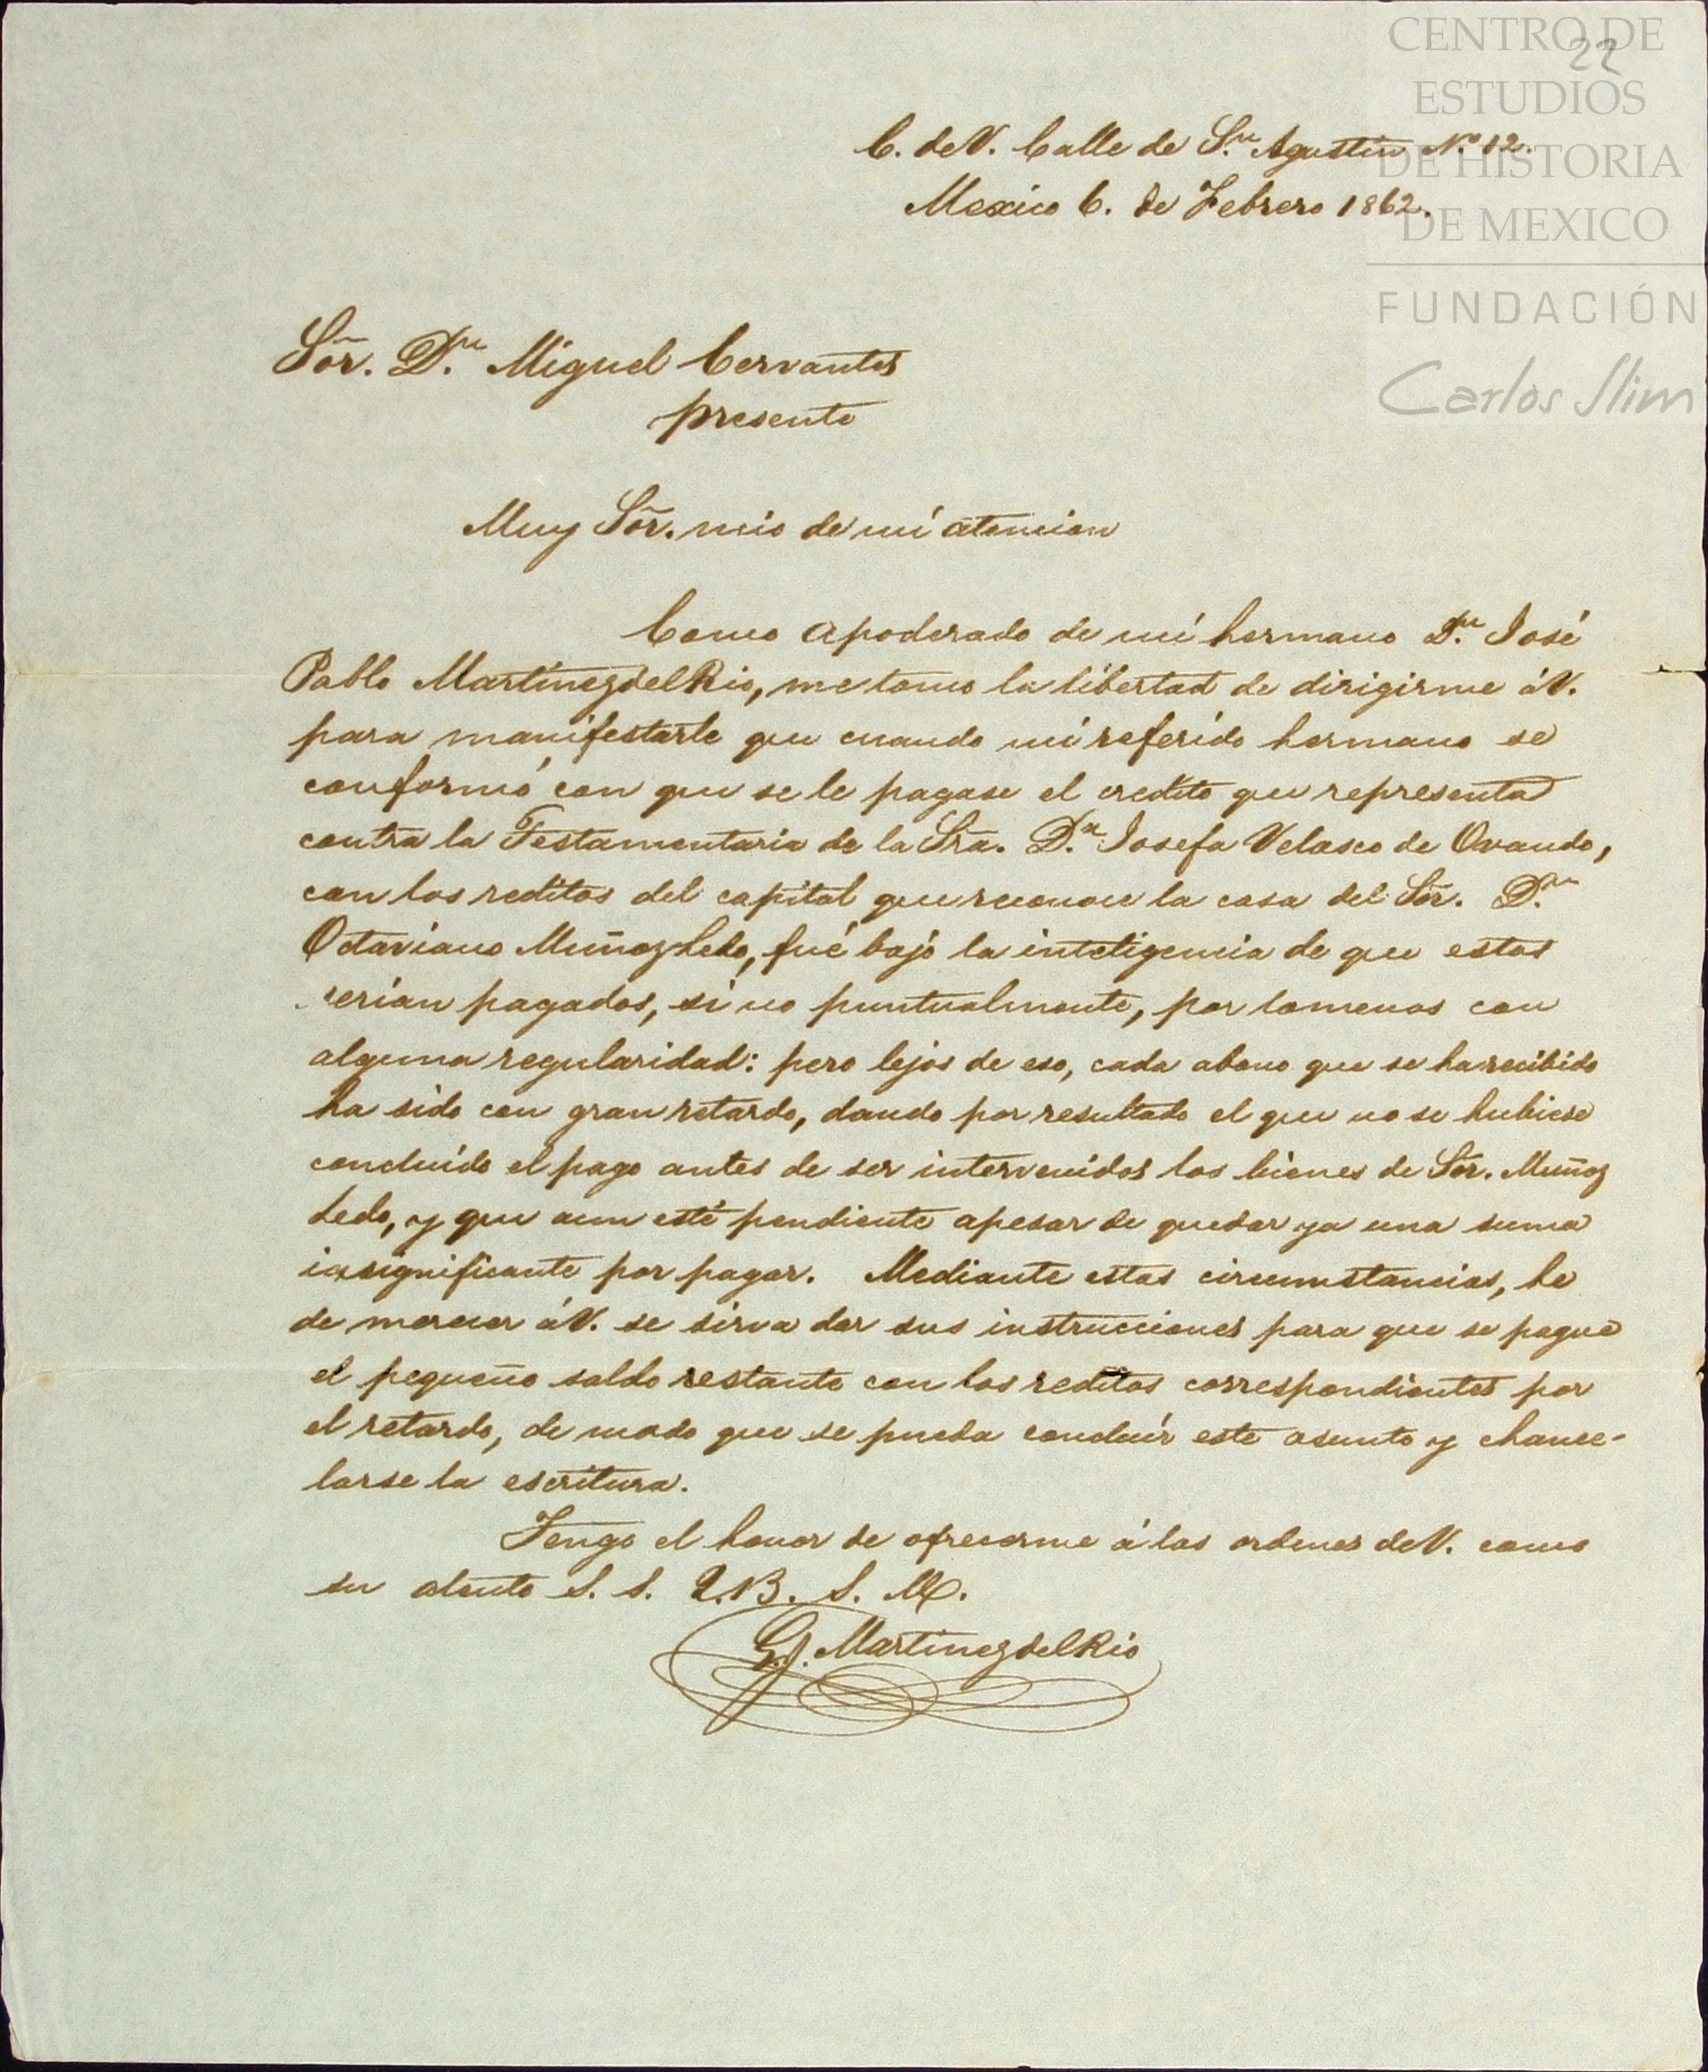 CENTRO DE
22
ESTUDIOS
DE HISTORIA
DE MEXICO
FUNDACIÓN
Carlos Slim
C. de V. Calle de S.n Agustin N.o 12.
Mexico 6. de Febrero 1862.
Sõr. D.n Miguel Cervantes
presente
Muy Sõr. mio de mi atencion
Como apoderado de mi hermano D.n José
Pablo Martinez del Rio, me tomo la libertad de dirigirme á V.
para manifestarle que cuando mi referido hermano se
conformó con que se le pagase el credito que representa
contra la Testamentaria de la Sra. D.a Josefa Velasco de Ovando,
con los reditos del capital que reconoce la casa del Sõr. D.n
Octaviano Muñoz Ledo, fué bajo la inteligencia de que estos
serian pagados, si no puntualmente, por lo menos con
alguna regularidad: pero lejos de eso, cada abono que se ha recibido
ha sido con gran retardo, dando por resultado el que no se hubiese
concluido el pago antes de ser intervenidos los bienes de Sõr. Muñoz
Ledo, y que aun esté pendiente apesar de quedar ya una suma
insignificante por pagar. Mediante estas circumstancias, he
de merecer á V. se sirva dar sus instrucciones para que se pague
el pequeño saldo restante con los reditos correspondientes por
el retardo, de modo que se pueda concluír este asunto y chance-
larse la escritura.
Tengo el honor de ofrecerme á las ordenes de V. como
su atento S. S. Q. B. S. M.
G. J. Martinez del Rio